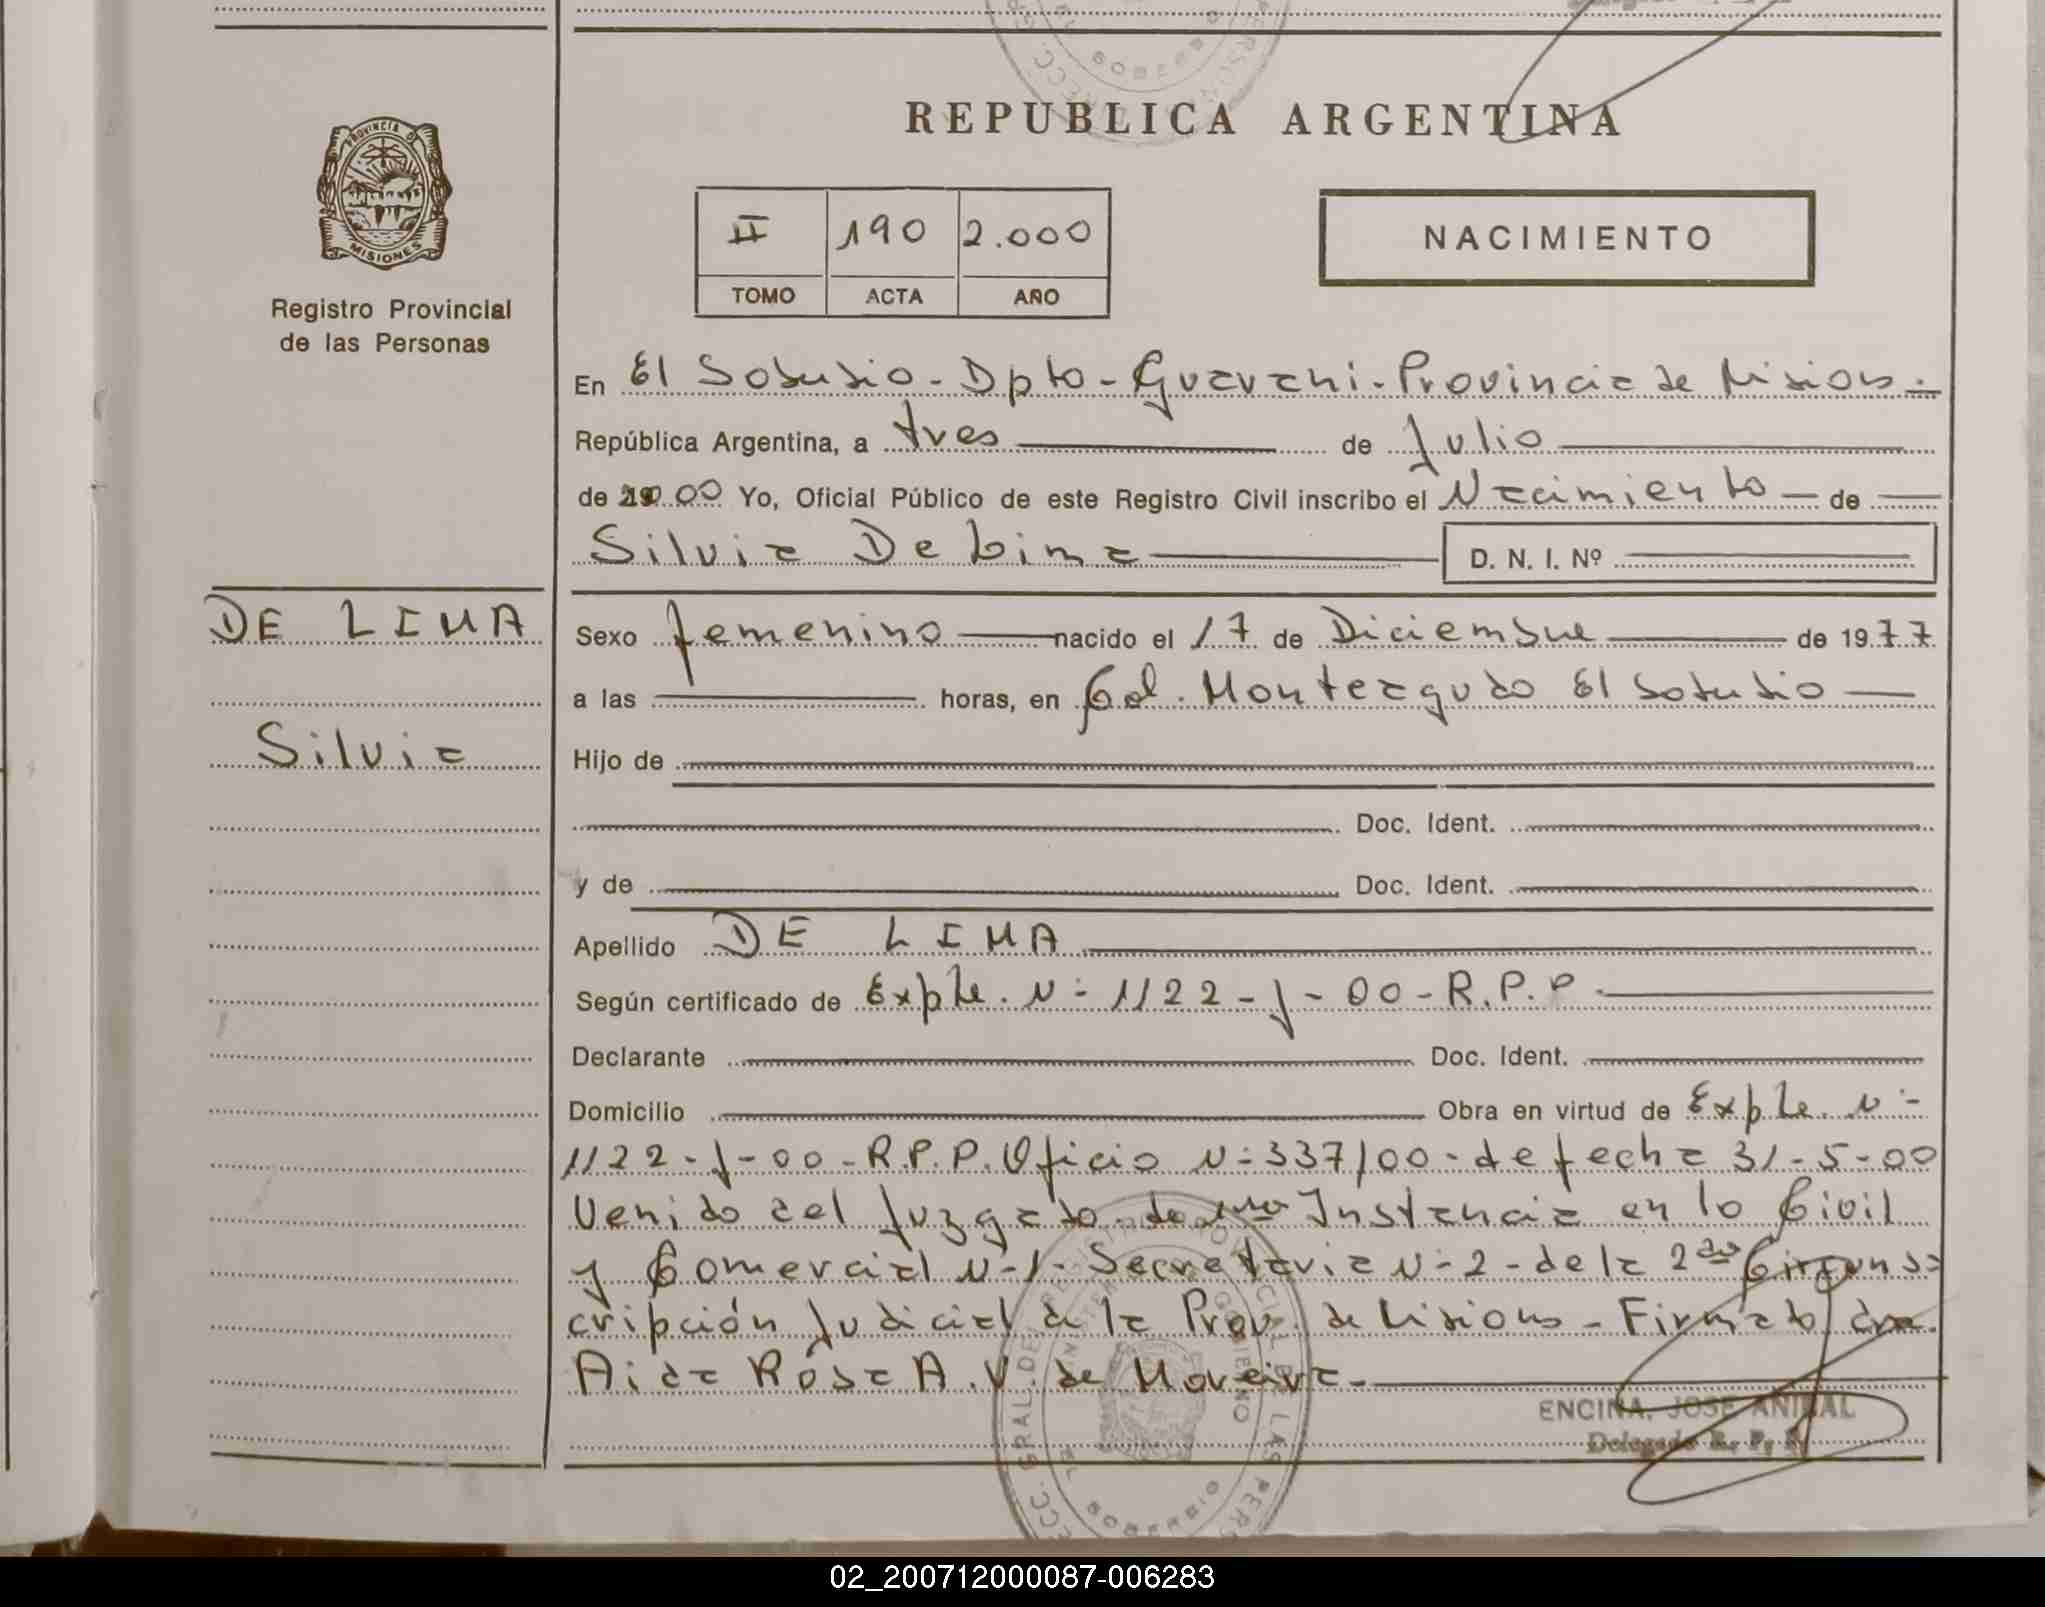 REPUBLICA ARGENTINA
PROVINCIA DE
MISIONES
Registro Provincial
de las Personas
II 190 2.000
TOMO ACTA AÑO
NACIMIENTO
En El Soberbio - Dpto - Guarani - Provincia de Misiones.
República Argentina, a tres de Julio
de 2000 Yo, Oficial Público de este Registro Civil inscribo el Nacimiento de
Silvia De Lima D. N. I. Nº
DE LIMA
Silvia
Sexo femenino nacido el 17 de Diciembre de 1977
a las horas, en Col. Monteagudo El Soberbio
Hijo de
Doc. Ident.
y de Doc. Ident.
Apellido DE LIMA
Según certificado de Expte. N- 1122 - J - 00 - R.P.P
Declarante Doc. Ident.
Domicilio Obra en virtud de Expte. N-
1122 - J - 00 - R.P.P. Oficio N- 337/00 - de fecha 31-5-00
Venido del Juzgado de 1ra Instancia en lo Civil
y Comercial N-1. Secretaria N-2 - de la 2da Circuns=
cripción Judicial de la Prov. de Misiones - Firmado dra.
Aida Rosa A.V. de Moreira.
ENCINA, JOSE ANIBAL
Delegado R. P. P.
DIRECC. GRAL. DEL REGISTRO PROVINCIAL DE LAS PERSONAS
EL SOBERBIO
02_200712000087-006283